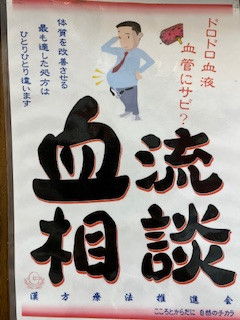 ドロドロ血液
血管にサビ？
体質を改善させる
最も適した処方は
ひとりひとり違います
血流
相談
漢方療法推進会
こころとからだに 自然のチカラ